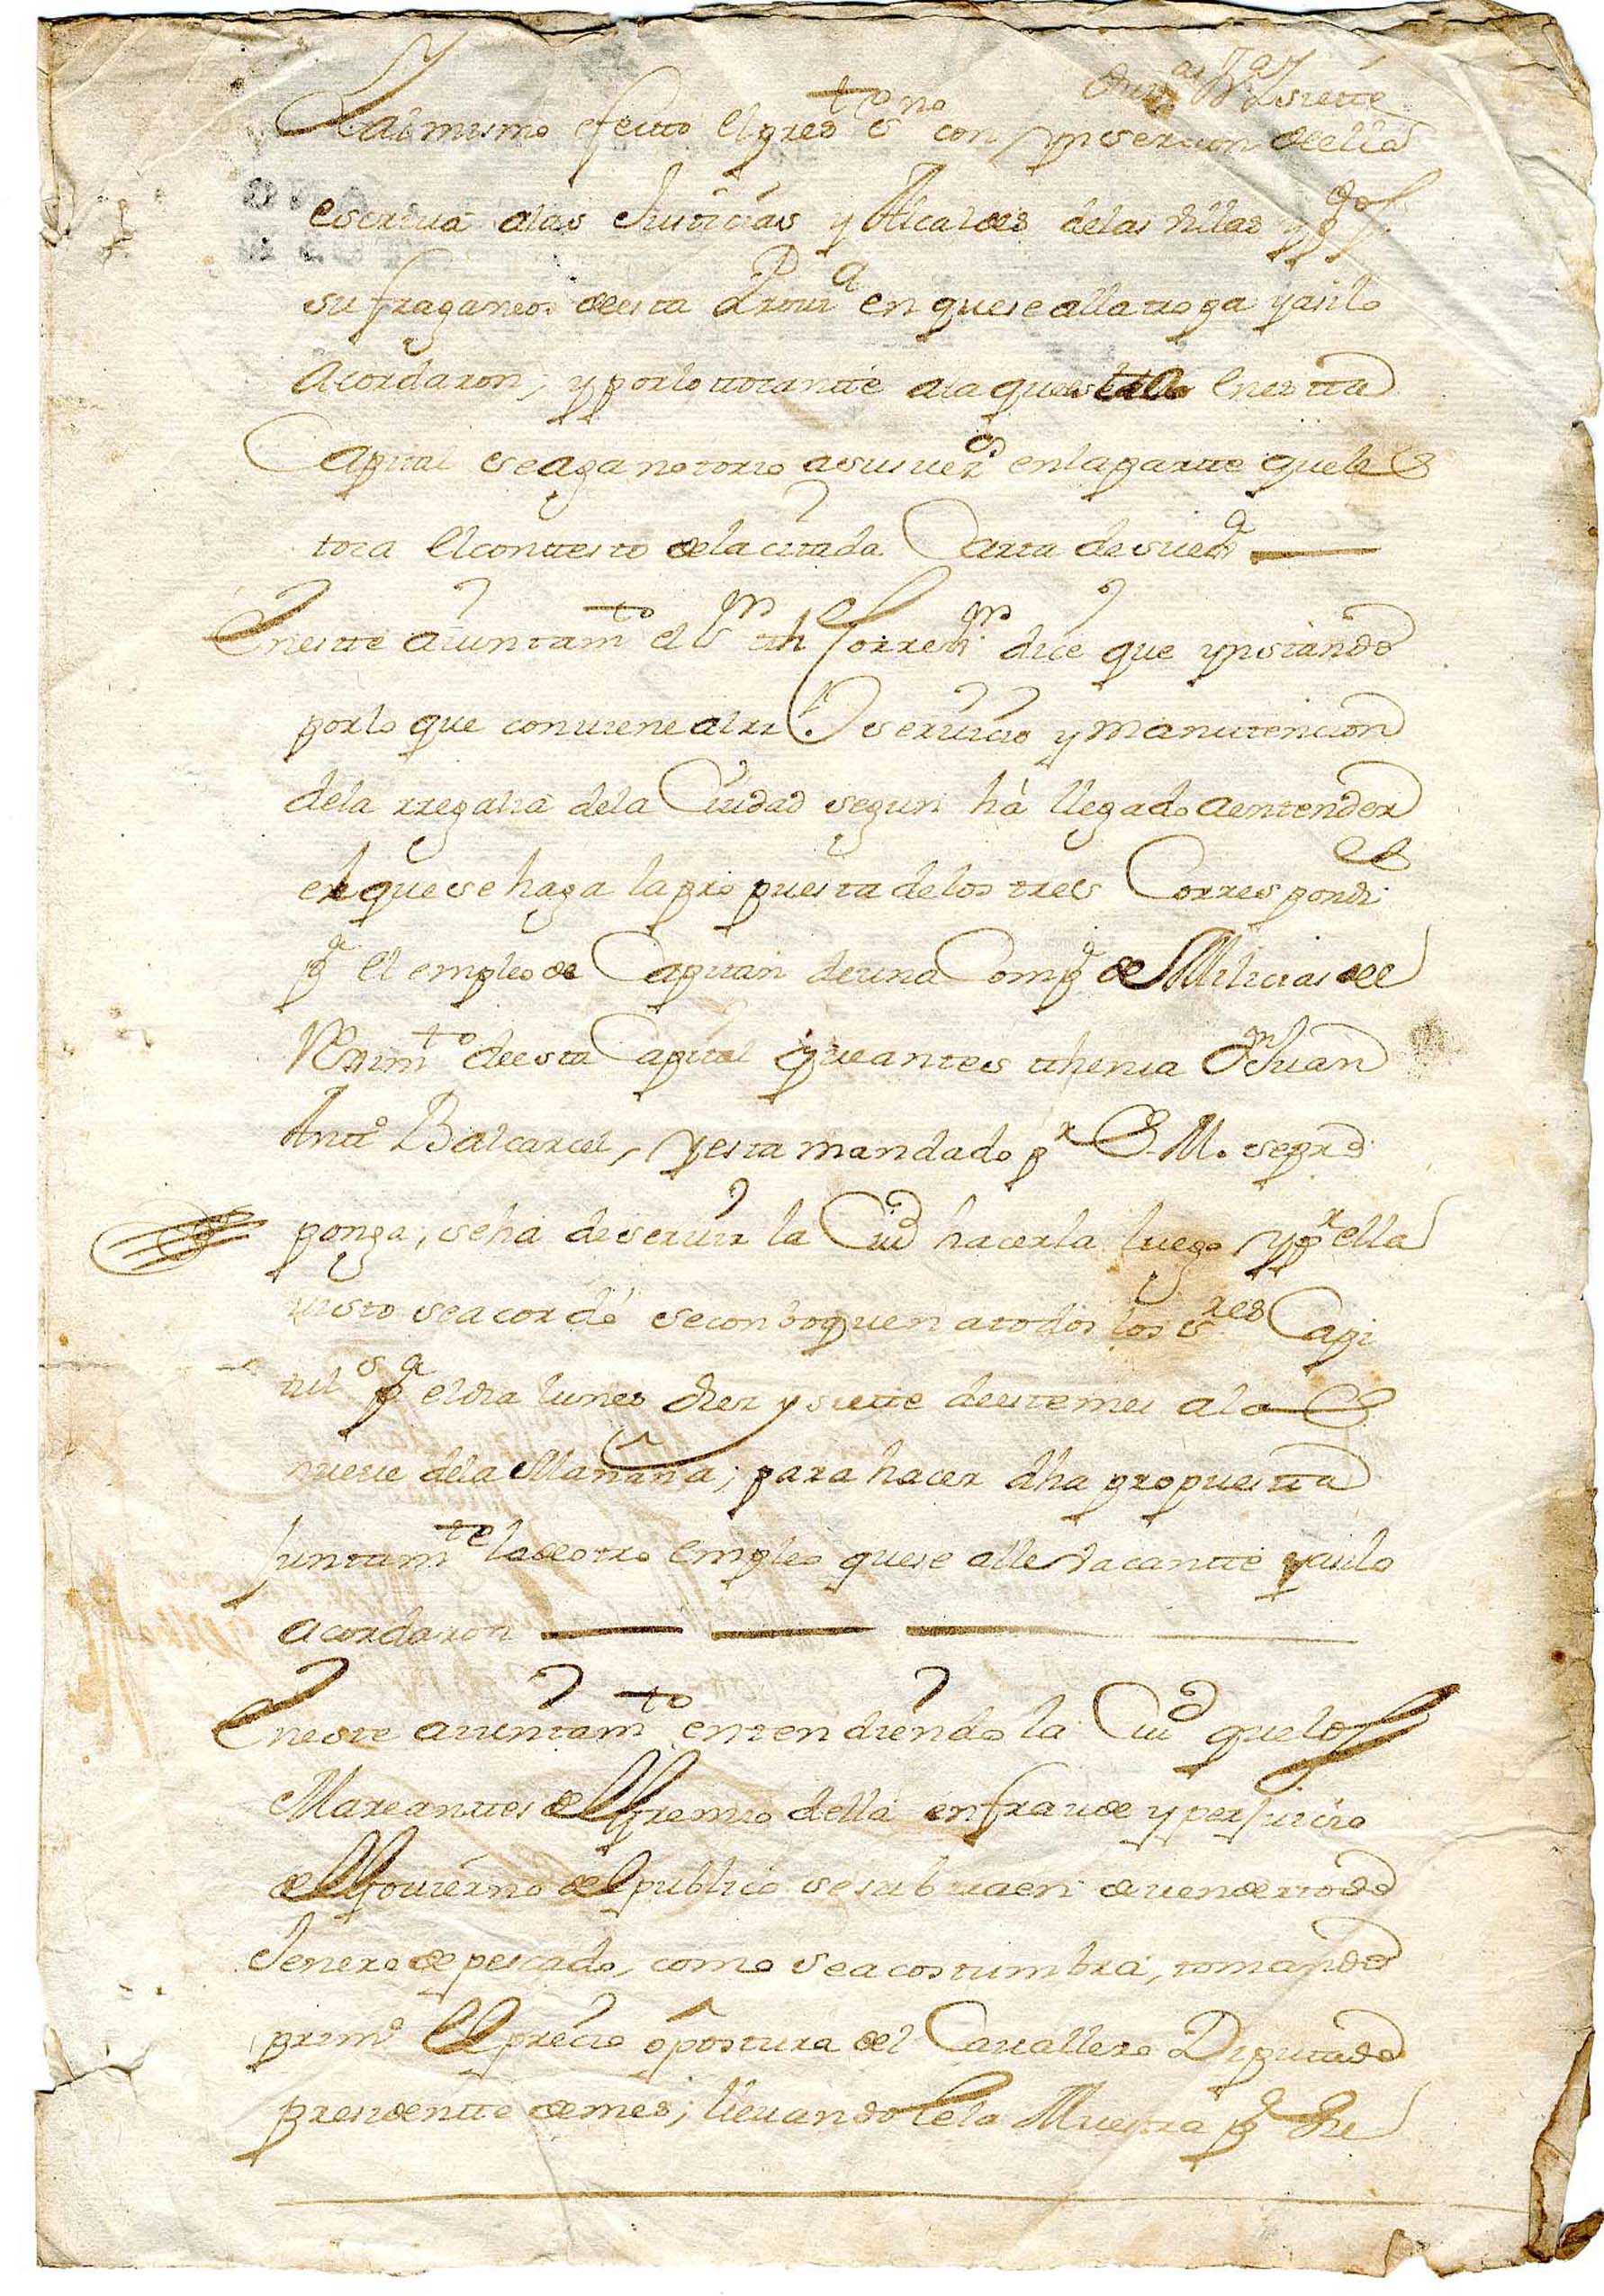 Y al mismo efectto el pres.te es.no con ynsercion della
escriua alas Justicias y Alcaldes delas villas y
sufraganeos deesta Prou.a en quese alla tropa yasilo
acordaron, y porlo ttocantte ala que enestta
Capital seaga notorio asus enlapartte queles
toca elcontesto dela citada Cartta de
Enestte aiuntam.to el S.r tth.e Corre dice que ynstando
porlo que conuiene alrr.l seruicio y manutencion
dela rregalia dela Ciudad segun há llegado aentender
elquese haga lapropuesta delos tres Correspond.es
p.a el empleo de Capitan deuna Comp.a de Milicias del
Regim.to deesta Capital queantes thenia D.n Juan
Antt.o Balcarcel, y esta mandado p.r S. M. sepro
ponga, seha deseruir la Ciu.d hacerla luego yp.r ella
uisto seacordó seconboquen atodos los s.res Capi
tul.s p.a eldia lunes diez y siette deestemes alas
nueue dela Mañana; para hacer dha propuestta
Junttam.te ladeotro empleo quese alle vacantte yasilo
acordaron
Eneste aiuntam.to entendiendo la Ciu.d quelos
Mareanttes del Gremio della enfraude y perjuicio
del Gouierno del publico sesubtraen deuendertodo
Jenero depescado, como seacostumbra, tomando
prim.o el precio ó postura del Cauallero Diputado
presidentte demes; lleuandolela Muestra p.a